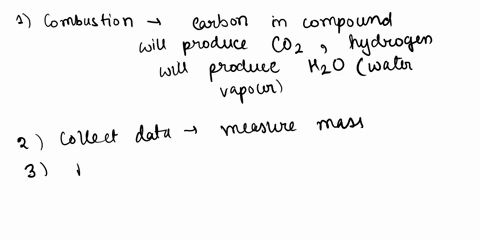 1) Combustion → carbon in compound
will produce CO2 , hydrogen
will produce H2O (water
vapour)
2) Collect data → measure mass
3)